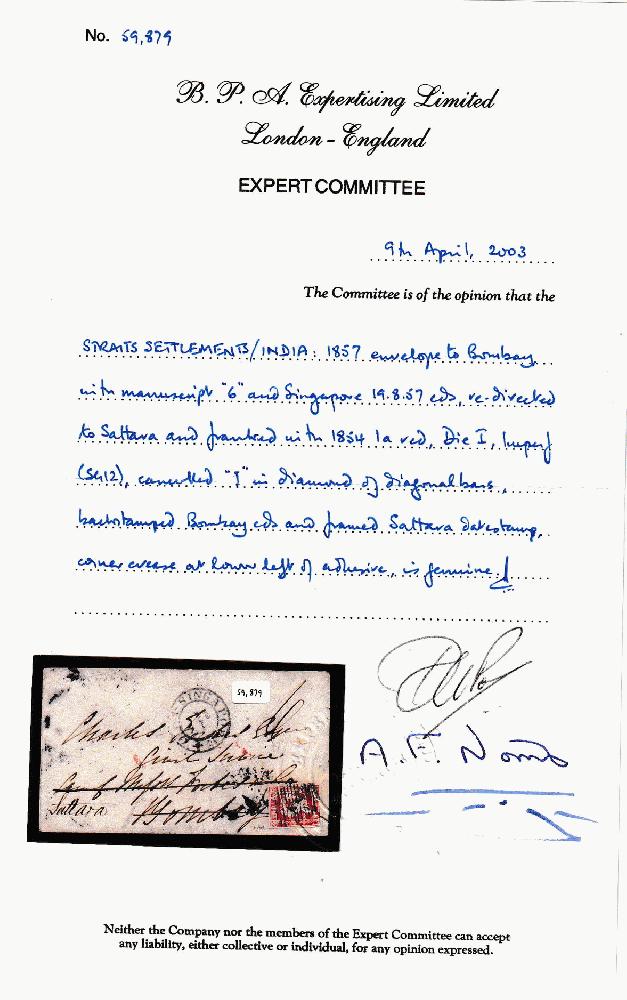 No. 59,879
B. P. A. Expertising Limited
London - England
EXPERT COMMITTEE
9th April, 2003
The Committee is of the opinion that the
STRAITS SETTLEMENTS/INDIA: 1857 envelope to Bombay
with manuscript "6" and Singapore 19.8.57 cds, re-directed
to Sattara and franked with 1854 1a red, Die I, Imperf
(SG12), cancelled "1" in diamond of diagonal bars,
backstamped Bombay cds and framed Sattara datestamp,
corner crease at lower left of adhesive, is genuine.
59,879
SINGAPORE
Charles
Civil Service
Bombay
Sattara
A. F. Norris
Neither the Company nor the members of the Expert Committee can accept
any liability, either collective or individual, for any opinion expressed.